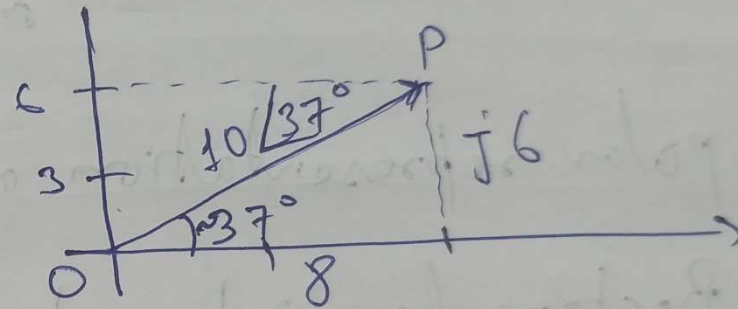 P
6
10∠37°
j6
3
~37°
O
8